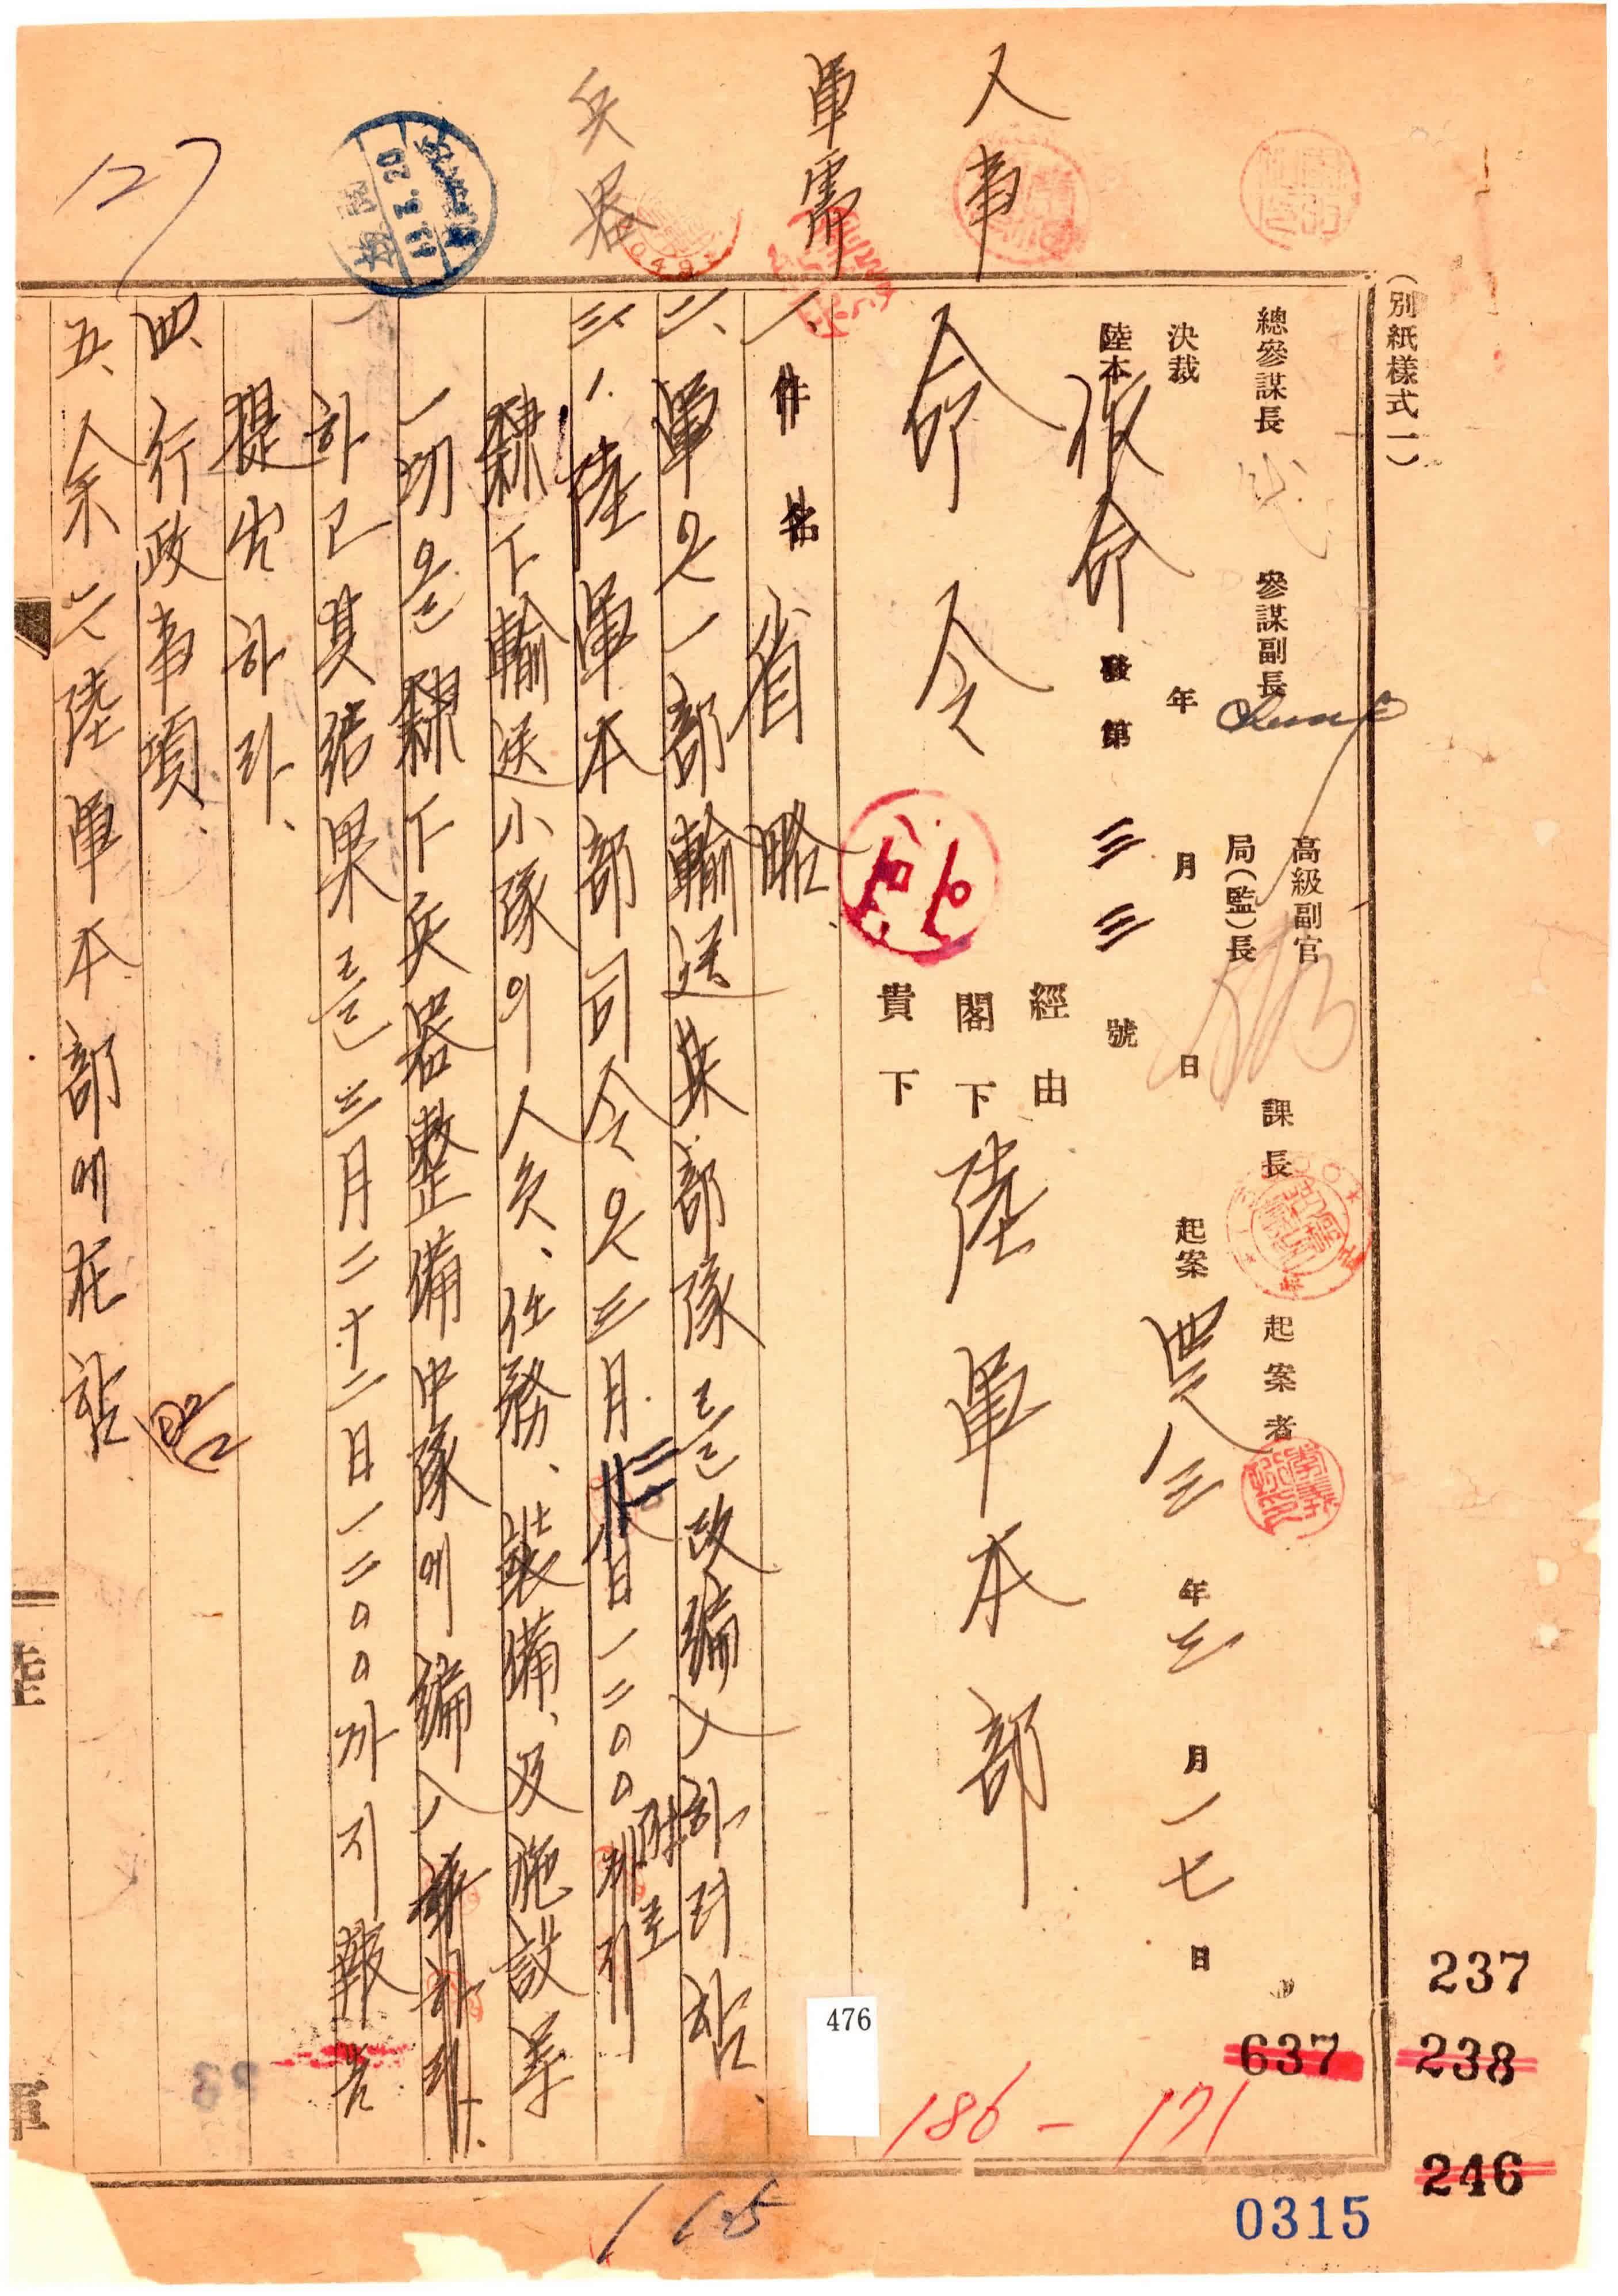 (別紙樣式一)
總參謀長 代 參謀副長 高級副官 局(監)長 課長 起案者
決裁 年 月 日 起案 四二八三年三月一七日
陸本 作命 發第 三三 號
人事
軍需
兵器
命令
經由
閣下
貴下
陸軍本部
一、件名 省略
二、軍은 一部 輸送 某部隊를 改編入 하려 함、
三、1. 陸軍本部司令은 三月 廿二日 一二〇〇 附로
隸下 輸送小隊의 人員、任務、裝備、及 施設等
一切을 隸下 兵器整備中隊에 編入
하고 其 結果를 三月二十二日 一二〇〇까지 報告
提出하라、
四、行政事項.
五、余는 陸軍本部에 在함
127
476
237
637
238
246
186 - 171
165
0315
陸
軍